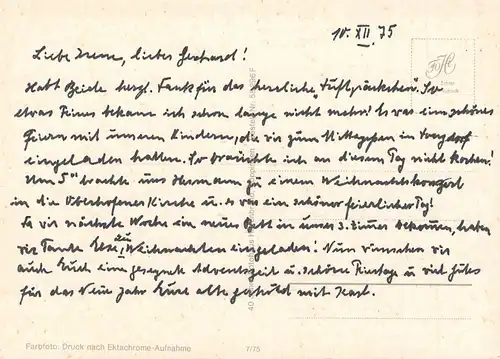 10. XII. 75
Liebe Irene, lieber Gerhard!
Habt Beide herzl. Dank für das herrliche „Duftpäckchen". So
etwas Feines bekam ich schon lange nicht mehr! Es war ein schönes
Feiern mit unseren Kindern, die wir zum Mittagessen in
eingeladen hatten. So brauchte ich an diesem Tag nicht kochen!
Um 5" brachte uns Hermann zu einem Weihnachtskonzert
in die Oberhofener Kirche u. es war ein schöner feierlicher Tag!
Da wir nächste Woche ein neues Bett in unser 3. Zimer bekommen, haben
wir Tante Else zu Weihnachten eingeladen! Nun wünschen wir
auch Euch eine gesegnete Adventszeit u. schöne Feiertage u. viel Gutes
für das Neue Jahr Eure alte Gerhild mit Karl.
Farbfoto: Druck nach Ektachrome-Aufnahme
7/75